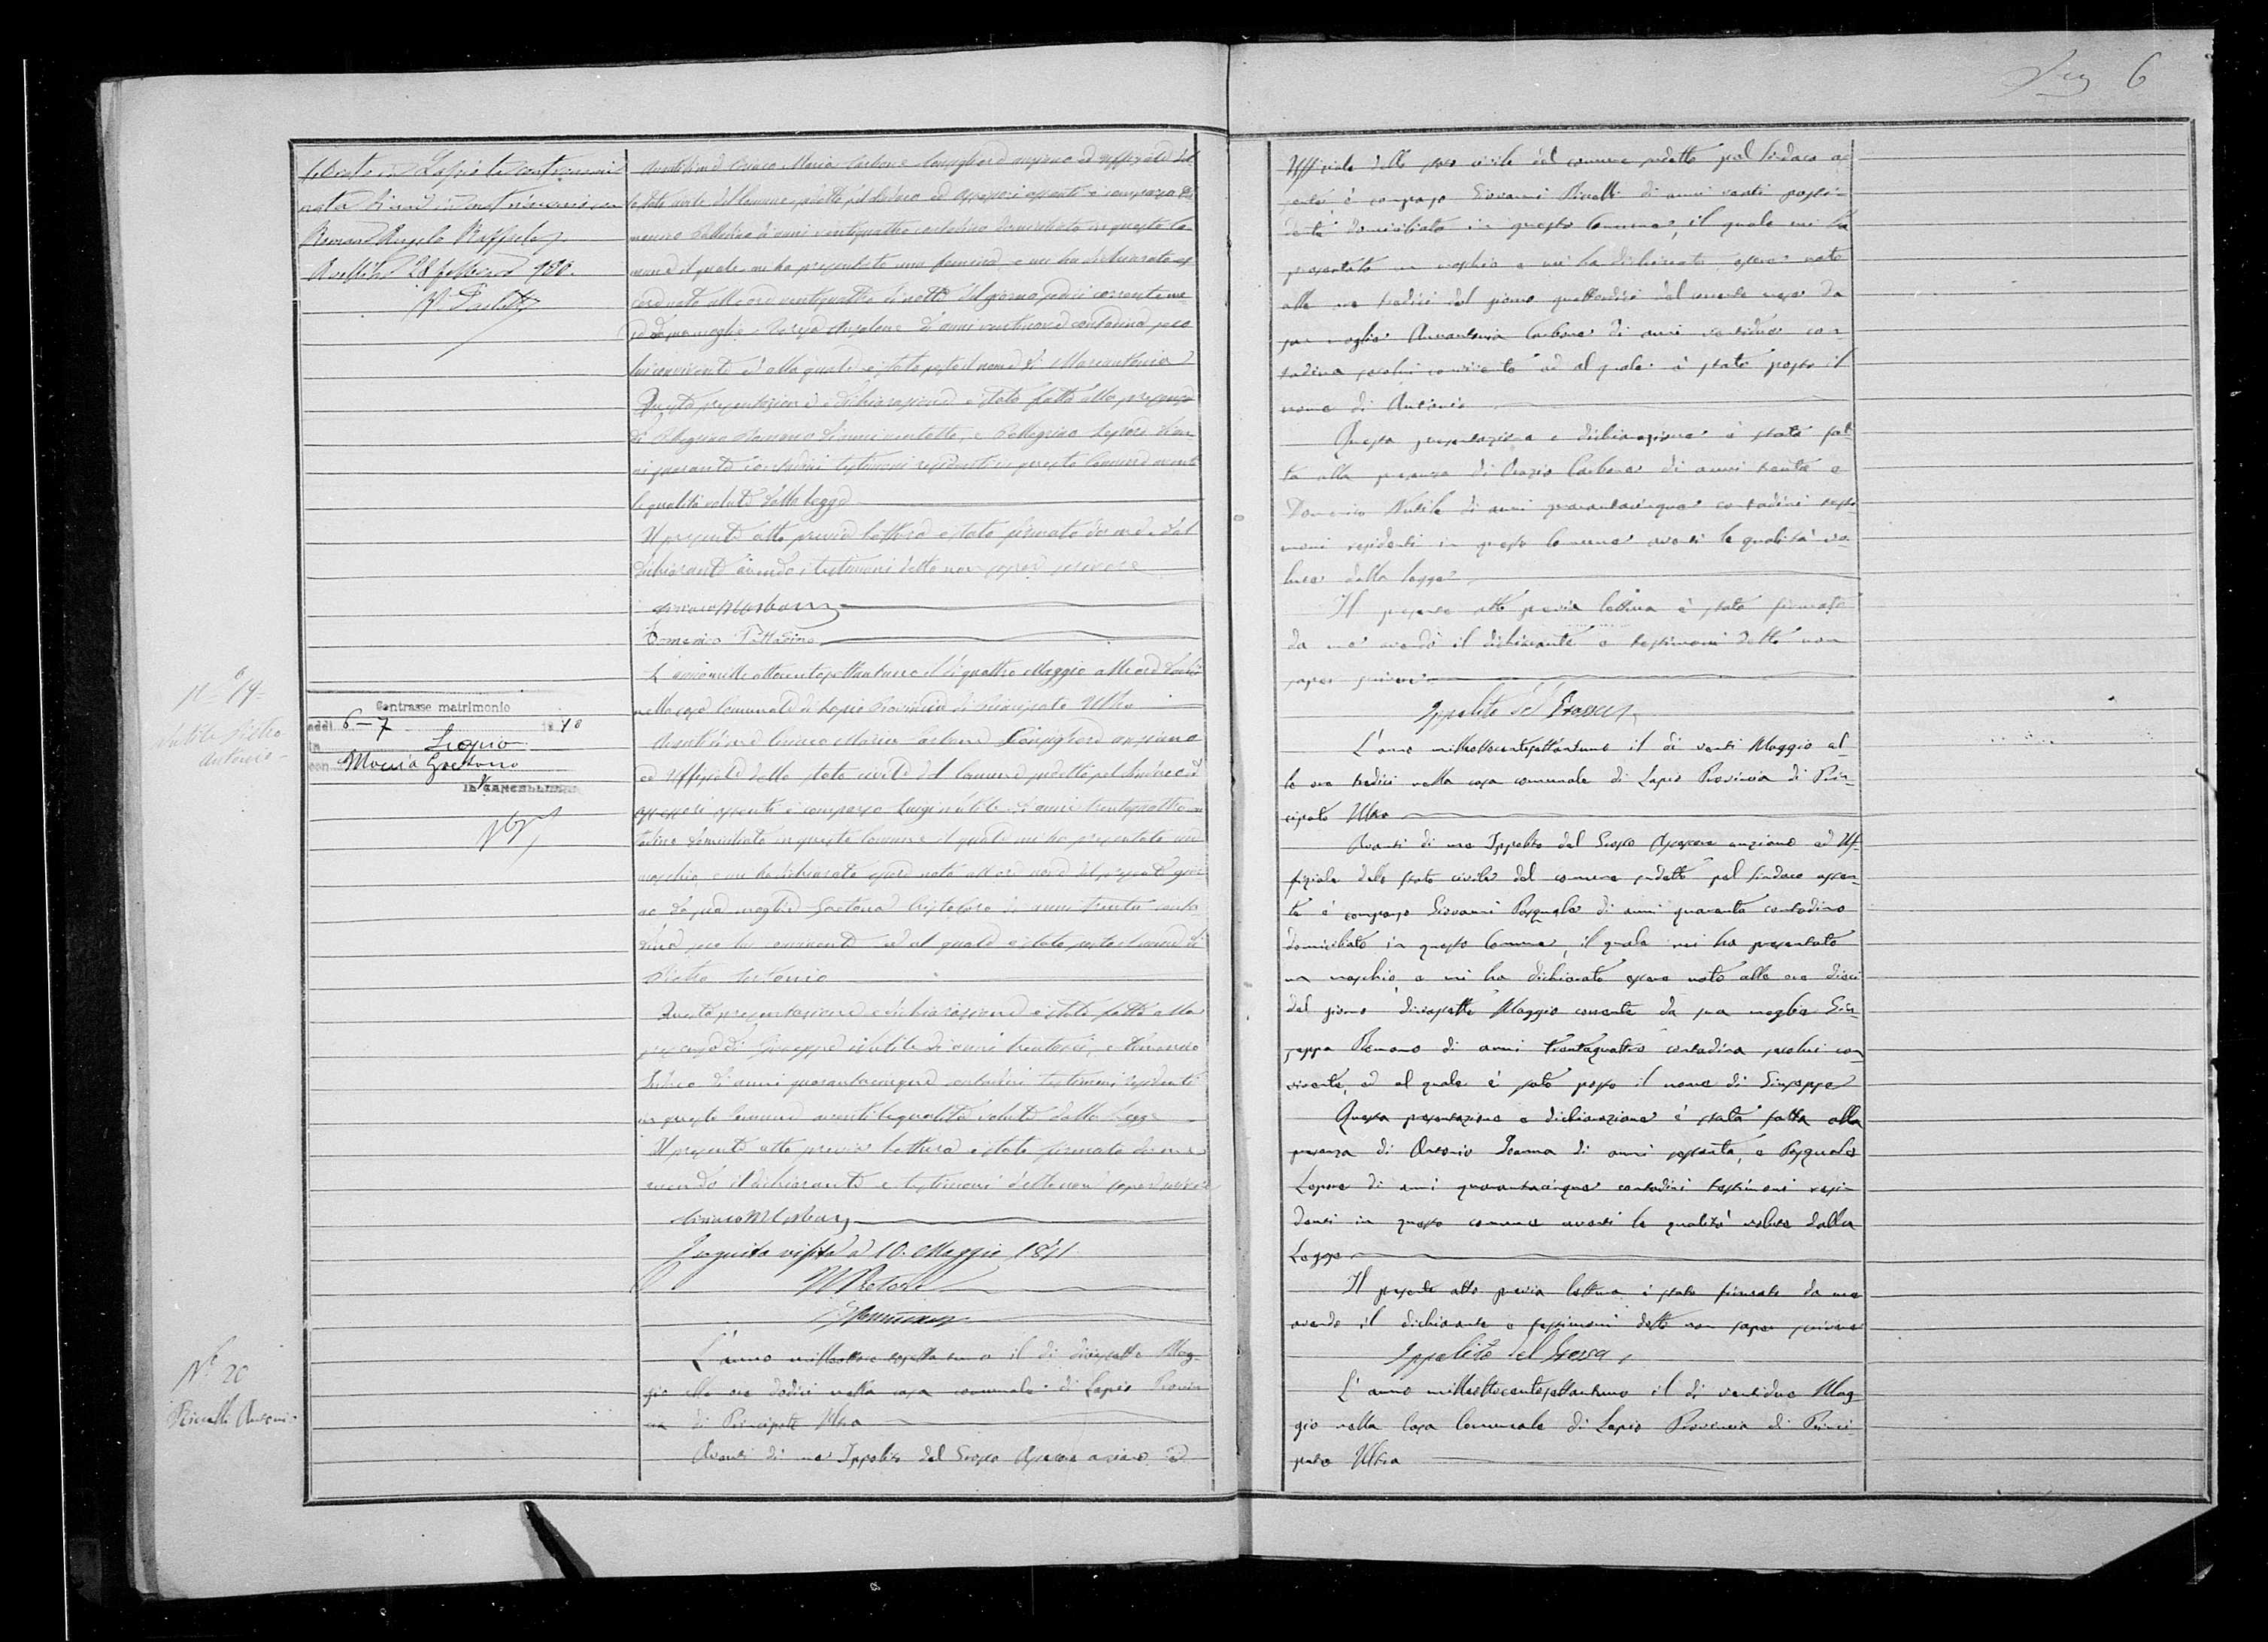 6
Romano Angelo Raffaele
Avellino 28 febbraio
Avanti di me Ciriaco Maria Carbone Consigliere anziano ed uffiziale del
lo stato civile del Comune
domiciliato in questo Co
mune il quale mi ha presentato una femina e mi ha dichiarato es
sere nata alle ore ventiquattro
di anni ventinove contadina seco
lui convivente ed alla quale è stato posto il nome di Mariantonia
Questa presentazione e dichiarazione è stata fatta alla presenza
di Pellegrino Romano di anni ventotto, e Pellegrino
ni quaranta contadini testimoni residenti in questo Comune aventi
le qualità volute dalla legge
Il presente atto previa lettura è stato firmato da me e dal
dichiarante avendo i testimoni detto non saper scrivere
Domenico
N° 19
Nutile Pietro
Antonio
Contrasse matrimonio
addì 6-7 1910
in Lapio
con Gaetano
IL CANCELLIERE
L'anno milleottocentosettantuno il dì quattro Maggio alle ore dodici
nella casa Comunale di Lapio Provincia di Principato Ultra
Avanti di me Ciriaco Maria Carbone Consigliere anziano
ed Uffiziale dello stato civile del Comune suddetto pel Sindaco ed
assessori assenti è comparso Luigi Nutile di anni trentaquattro con
tadino domiciliato in questo Comune il quale mi ha presentato un
maschio e mi ha dichiarato essere nato alle ore nove del presente gior
no da sua moglie Gaetana di anni trenta conta
dina seco lui convivente ed al quale è stato posto il nome di
Pietro Antonio
Questa presentazione e dichiarazione è stata fatta alla
presenza di Giuseppe Nutile di anni trentasei, e
di anni quarantacinque contadini testimoni residenti
in questo Comune aventi le qualità volute dalla legge
Il presente atto previa lettura è stato firmato da me
avendo il dichiarante e testimoni detto non saper scrivere
Seguita visita a 10. Maggio 1871
Il Pretore
N° 20
Rinelli Antonio
L'anno milleottocentosettantuno il dì diciassette Mag-
gio alle ore dodici nella casa comunale di Lapio Provin
cia di Principato Ultra
Avanti di me Ippolito del Grosso Assessore anziano ed
Uffiziale dello stato civile del comune sudetto pel Sindaco as
sente è comparso Giovanni Rinelli di anni venti possi-
dente domiciliato in questo Comune, il quale mi ha
presentato un maschio e mi ha dichiarato essere nato
alle ore tredici del giorno quattordici del corrente mese da
sua moglie Carbone di anni ventidue con
tadina secolui convivente ed al quale è stato posto il
nome di Antonio
Questa presentazione e dichiarazione è stata fat
ta alla presenza di Orazio Carbone di anni trenta e
Domenico Nutile di anni quarantacinque contadini testi
moni residenti in questo Comune aventi le qualità vo
lute dalla legge
Il presente atto previa lettura è stato firmato
da me avendo il dichiarante e testimoni detto non
saper scrivere
Ippolito del Grosso
L'anno milleottocentosettantuno il dì venti Maggio al
le ore tredici nella casa comunale di Lapio Provincia di Prin-
cipato Ultra
Avanti di me Ippolito del Grosso Assessore anziano ed Uf-
fiziale dello stato civile del comune sudetto pel Sindaco assen
te è comparso Giovanni Pasquale di anni quaranta contadino
domiciliato in questo Comune, il quale mi ha presentato
un maschio, e mi ha dichiarato essere nato alle ore dieci
del giorno diciassette Maggio corrente da sua moglie Giu-
seppa Romano di anni trentaquattro contadina secolui con
vivente, ed al quale è stato posto il nome di Giuseppe
Questa presentazione e dichiarazione è stata fatta alla
presenza di Antonio Ioanna di anni sessanta, e Pasquale
Lepore di anni quarantacinque contadini testimoni resi-
denti in questo comune aventi le qualità volute dalla
Legge
Il presente atto previa lettura è stato firmato da me
avendo il dichiarante e testimoni detto non saper scrivere
Ippolito del Grosso
L'anno milleottocentosettantuno il dì ventidue Mag-
gio nella Casa Comunale di Lapio Provincia di Princi-
pato Ultra